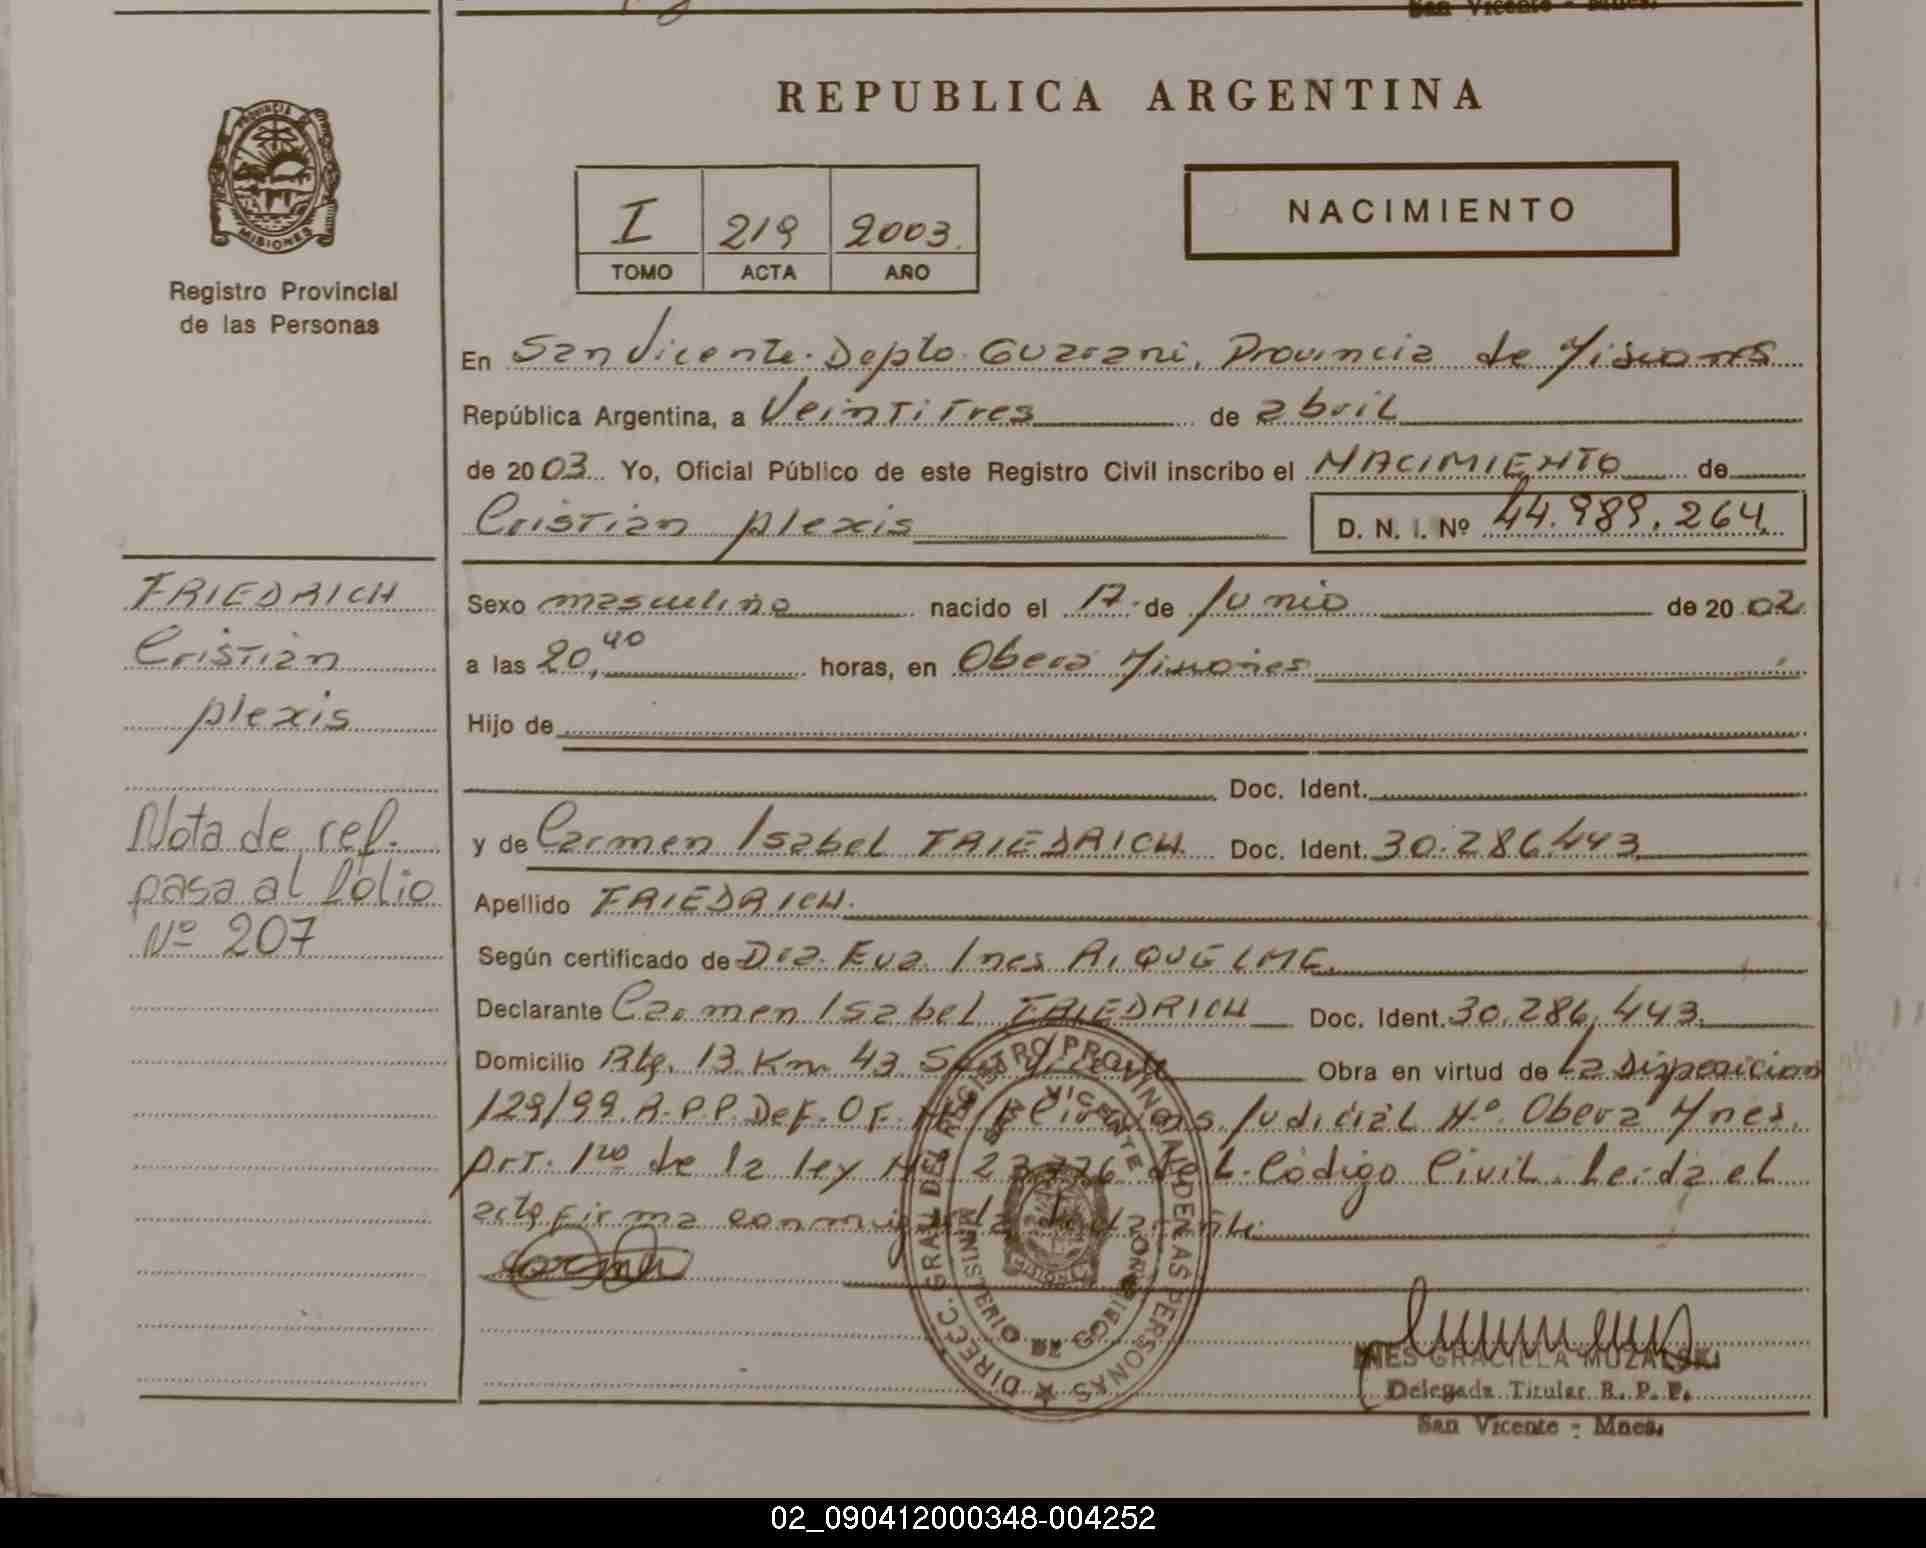 San Vicente - Mnes.
REPUBLICA ARGENTINA
PROVINCIA DE
MISIONES
Registro Provincial
de las Personas
I 219 2003.
TOMO ACTA AÑO
NACIMIENTO
En San Vicente. Depto. Guarani, Provincia de Misiones
República Argentina, a Veintitres de abril
de 2003 Yo, Oficial Público de este Registro Civil inscribo el NACIMIENTO de
Cristian Alexis D. N. I. Nº 44.989.264
FRIEDRICH
Cristian
Alexis
Nota de ref.
pasa al folio
Nº 207
Sexo masculino nacido el 17 de Junio de 2002
a las 20,40 horas, en Obera Misiones
Hijo de
Doc. Ident.
y de Carmen Isabel FRIEDRICH Doc. Ident. 30.286.443
Apellido FRIEDRICH.
Según certificado de Dra. Eva Ines RIQUELME
Declarante Carmen Isabel FRIEDRICH Doc. Ident. 30.286.443.
Domicilio Rta. 13 Km 43 San Vicente Obra en virtud de la Disposicion
129/99. R.P.P. Def. Of. Judicial Nº. Obera Mnes.
Art. 1ro de la ley Nº 23. del Código Civil. Leida el
acta firma conmigo la declarante.
DIREC. GRAL DEL REGISTRO PROVINCIAL DE LAS PERSONAS
SAN VICENTE
MINISTERIO DE GOBIERNO
INES GRACIELA MUZALSKI
Delegada Titular R. P. P.
San Vicente - Mnes.
02_090412000348-004252